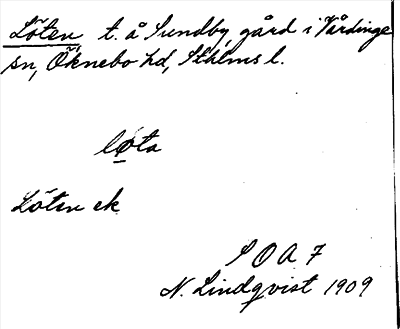 Löten t. å Sundby, gård i Vårdinge
sn, Öknebo hd, Sthlms l.
løta
Löten ek
S O A 7
N. Lindqvist 1909